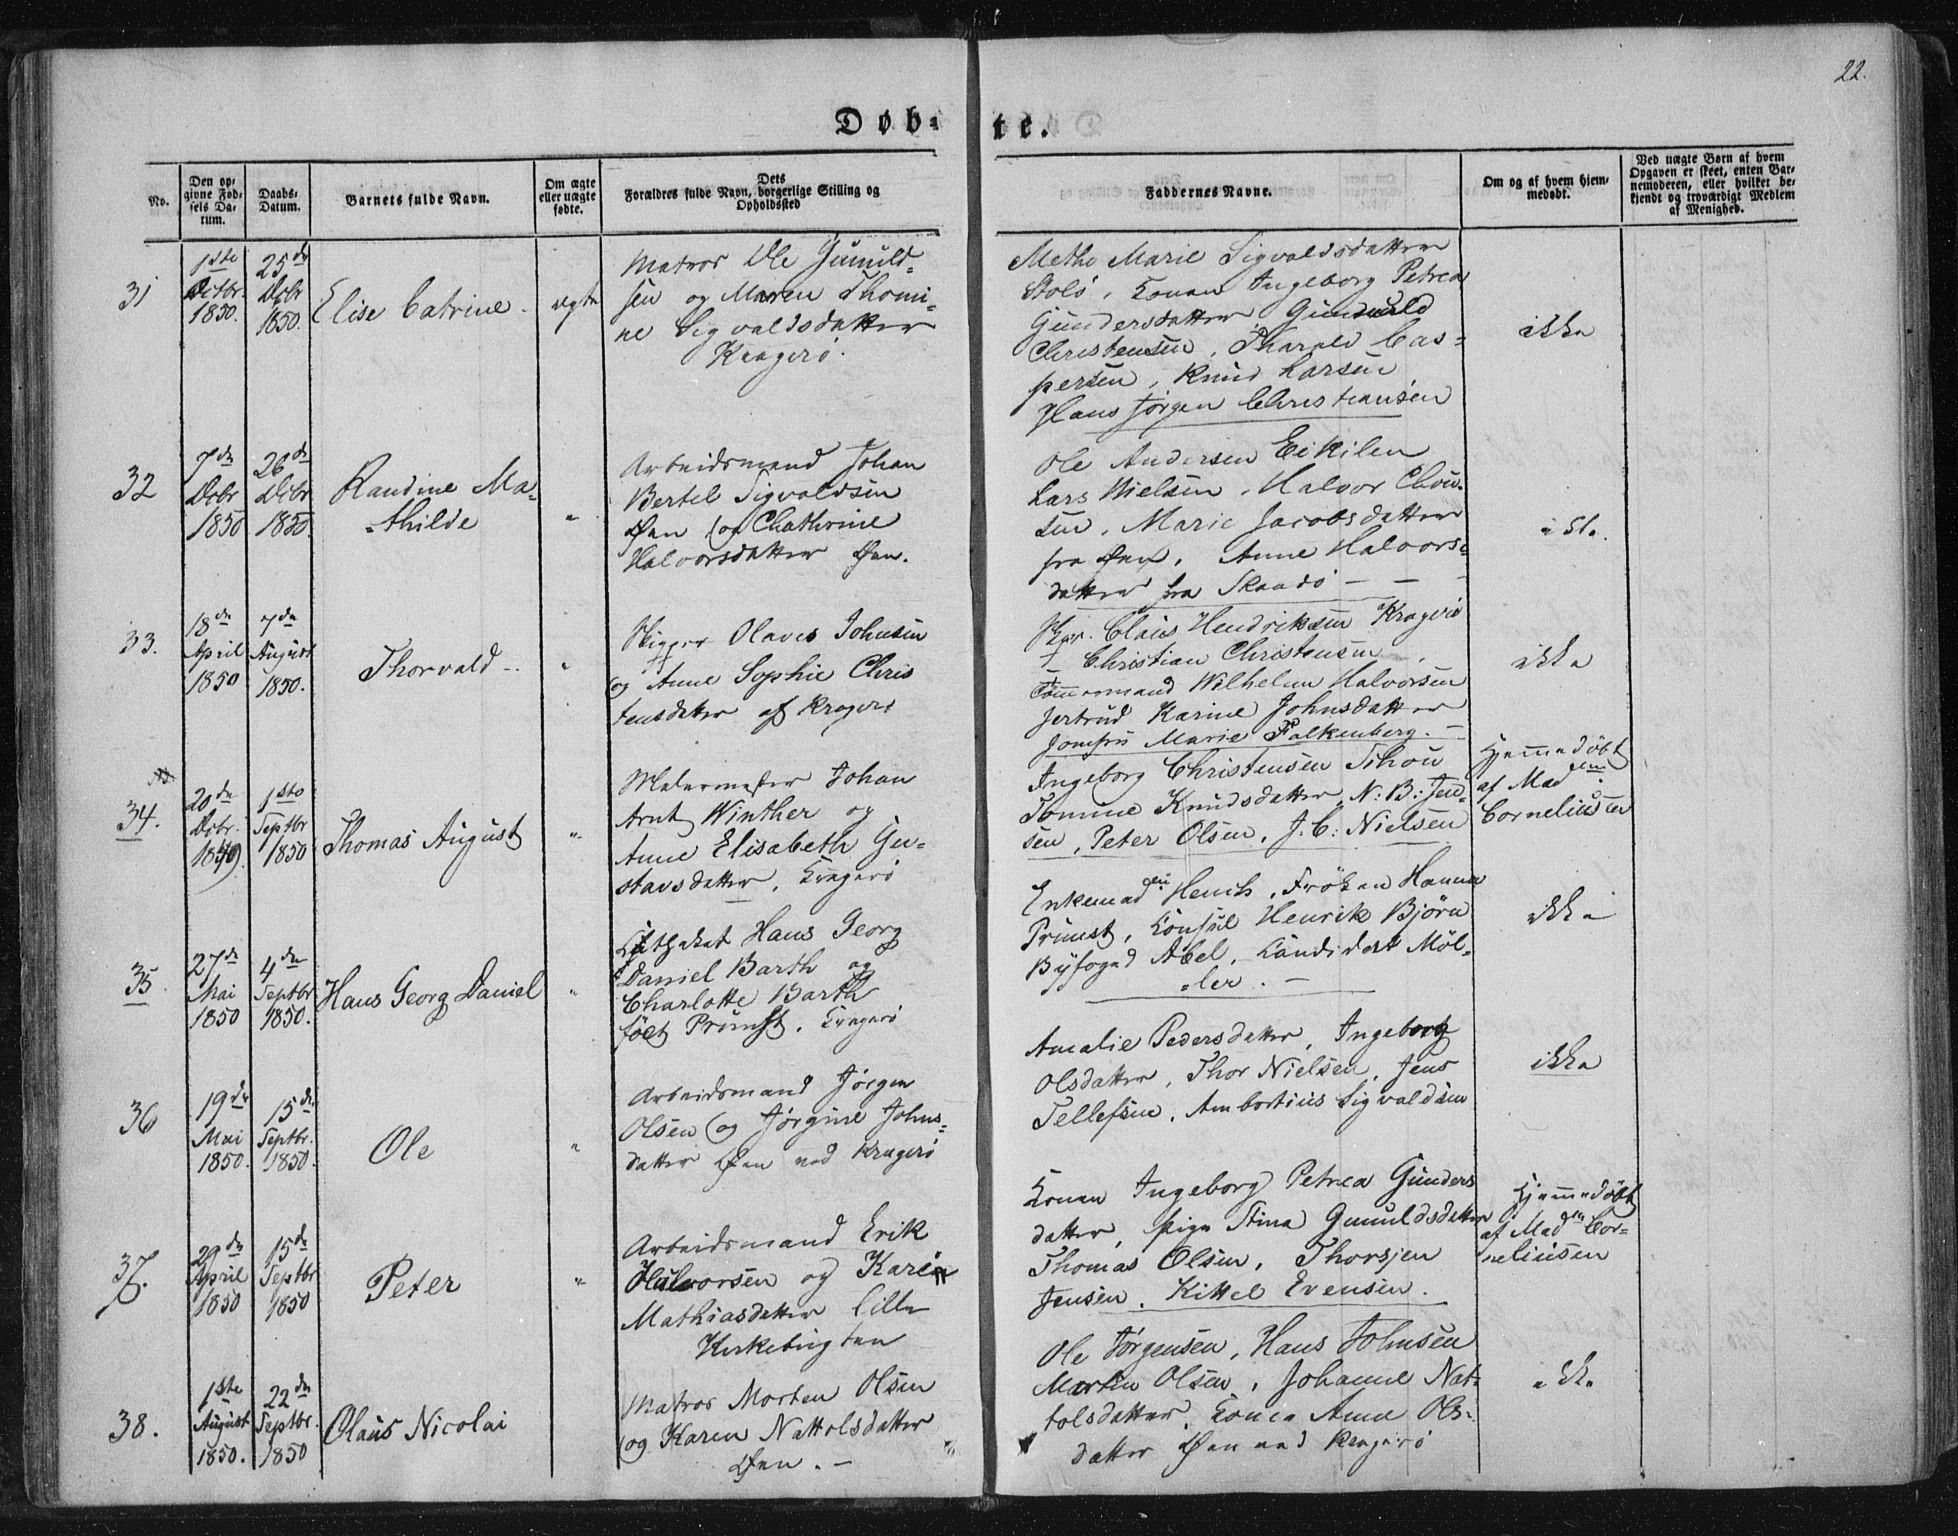 22.
Døb-
te.
No.
Den op-
givne Fød-
sels Da-
tum.
Daabs-
Datum.
Barnets fulde Navn.
Om ægte
eller uægte
fødte.
Dets
Forældres fulde Navn, borgerlige Stilling og
Opholdssted
Faddernes Navne.
Om og af hvem hjem-
medøbt.
Ved uægte Børn af hvem
Opgaven er skeet, enten Bar-
nemoderen, eller hvilket be-
kjendt og troværdigt Medlem
af Menighed.
31
1ste
Octbr.
1850.
25de
Dcbr
1850.
Elise Catrine.
ægte
Matros Ole Gunuld-
sen og Maren Thomi-
ne Sigvaldsdatter
Kragerö.
Methe Marie Sigvaldsdatter
Stolö, Konen Ingeborg Petrea
Gundersdatter Gunnuld
Christensen, Tharald Cas-
persen, Knud Larsen
Hans Jörgen Christiansen
ikke
32
7de
Dcbr
1850
26de
Dcbr
1850.
Randine Ma-
thilde
"
Arbeidsmand Johan
Bertel Sigvaldsen
Øen og Chathrine
Halvorsdatter Øen.
Ole Andersen Eikilen
Lars Nielsen, Halvor Chou-
sen, Marie Jacobsdatter
fra Øen, Anne Halvors-
datter fra Skaadö - - -
ikke
33.
18de
April
1850
7de
August
1850.
Thorvald -
"
Skipper Olaves Johnsen
og Anne Sophie Chris
tensdatter af Kragerö
Skpr. Claus Hendriksen Kragerö
Christian Christensen
Tömmermand Wilhelm Halvorsen
Jertrud Karine Johnsdatter
Jomfru Marie Falkenberg. -
ikke
34.
20de
Dcbr.
1849.
1ste
Septbr
1850
Thomas August
"
Malermester Johan
Arnt Winther og
Anne Elisabeth Gu-
stavsdatter, Kragerö
Ingeborg Christensen Thou
Tomine Knudsdatter, N: B: Jen-
sen, Peter Olsen, J. C: Nielsen
Hjemmedöbt
af Madem
Corneliussen
35
27de
Mai
1850
4de
Septbr
1850.
Hans Georg Daniel
"
Hans Georg
Daniel Barth og
Charlotte Barth
föet Prumst. Kragerö
Enkemadm Henchs, Fröken Hanna
Prumst, Konsul Henrik Björn
Byfoged Abel, Kandidat Möl-
ler. -
ikke
36
19de
Mai
1850.
15de
Septbr.
1850.
Ole
"
Arbeidsmand Jörgen
Olsen og Jörgine Johns-
datter Øen ved Kragerö
Amalie Pedersdatter, Ingeborg
Olsdatter, Thor Nielsen, Jens
Tellefsen, Ambortius Sigvaldsen
ikke
37.
29de
April
1850
15de
Septbr
1850
Peter
"
Arbeidsmand Erik
Halvorsen og Karen
Mathiasdatter Lille
Kirkebugten
Konen Ingeborg Petrea Gunders
datter, pige Stina Gunuldsdatter
Thomas Olsen, Thorsjen
Jensen, Kittel Evensen.
Hjemmedöbt
af Madm Cor-
neliusen
38.
1ste
August
1850.
22de
Septbr.
1850
Olaus Nicolai
Matros Morten Olsen
og Karen Nattolsdatter
Øen. -
Ole Jörgensen, Hans Johnsen
Martin Olsen, Johanne Nat-
tolsdatter, Konen Anne Ols-
datter Øen ved Kragerö
ikke